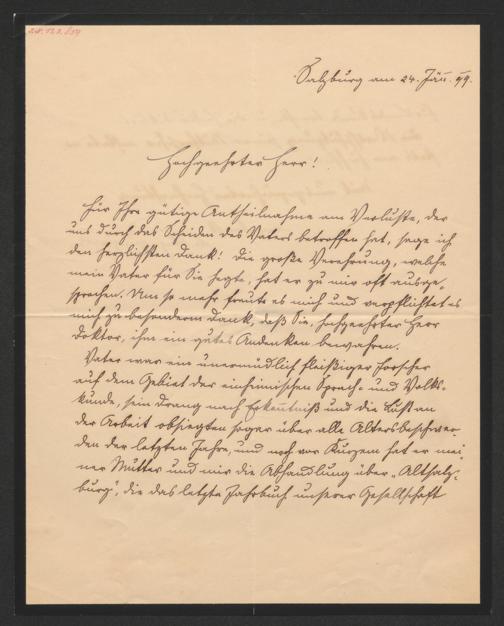 Salzburg am 24. Jän. 99.
Hochgeehrter Herr!
Für Ihre gütige Antheilnahme am Verluste, der
uns durch das Scheiden des Vaters betroffen hat, sage ich
den herzlichsten Dank! Die große Verehrung, welche
mein Vater für Sie hegte, hat er zu mir oft ausge-
sprochen. Um so mehr freute es mich und verpflichtet es
mich zu besonderem Dank, daß Sie, hochgeehrter Herr
Doktor, ihm ein gutes Andenken bewahren.
Vater war ein unermüdlich fleißiger Forscher
auf dem Gebiet der einheimischen Sprach- und Volks-
kunde, sein Drang nach Erkenntniß und die Lust an
der Arbeit obsiegten sogar über alle Altersbeschwer-
den der letzten Jahre, und noch vor Kurzem hat er mei-
ner Mutter und mir die Abhandlung über „Altsalz-
burg", die das letzte Jahrbuch unserer Gesellschaft